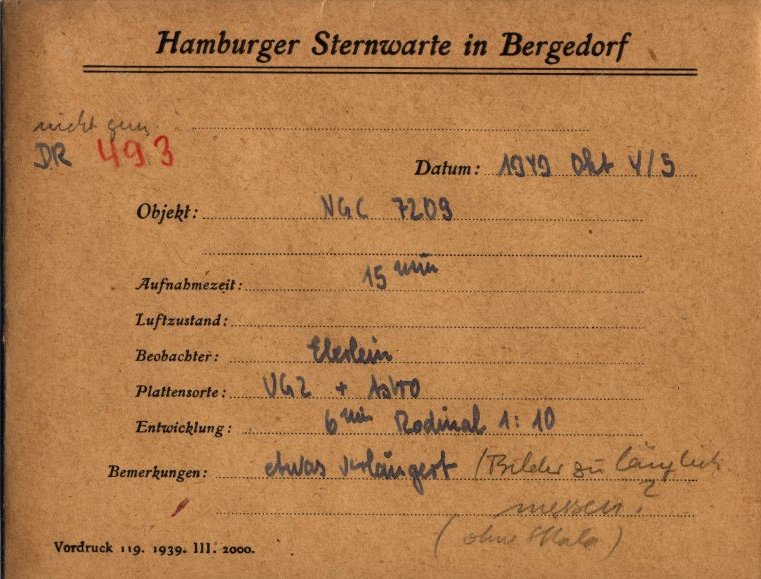 Hamburger Sternwarte in Bergedorf
nicht gem.
DR 493
Datum: 1949 Okt 4/5
Objekt: NGC 7209
Aufnahmezeit: 15 min
Luftzustand:
Beobachter: Eberlein
Plattensorte: UG2 +
Entwicklung: 6 min Rodinal 1:10
Bemerkungen: etwas verlängert (Bilder zu länglich
messen?
(ohne Skala)
Vordruck 119. 1939. III. 2000.